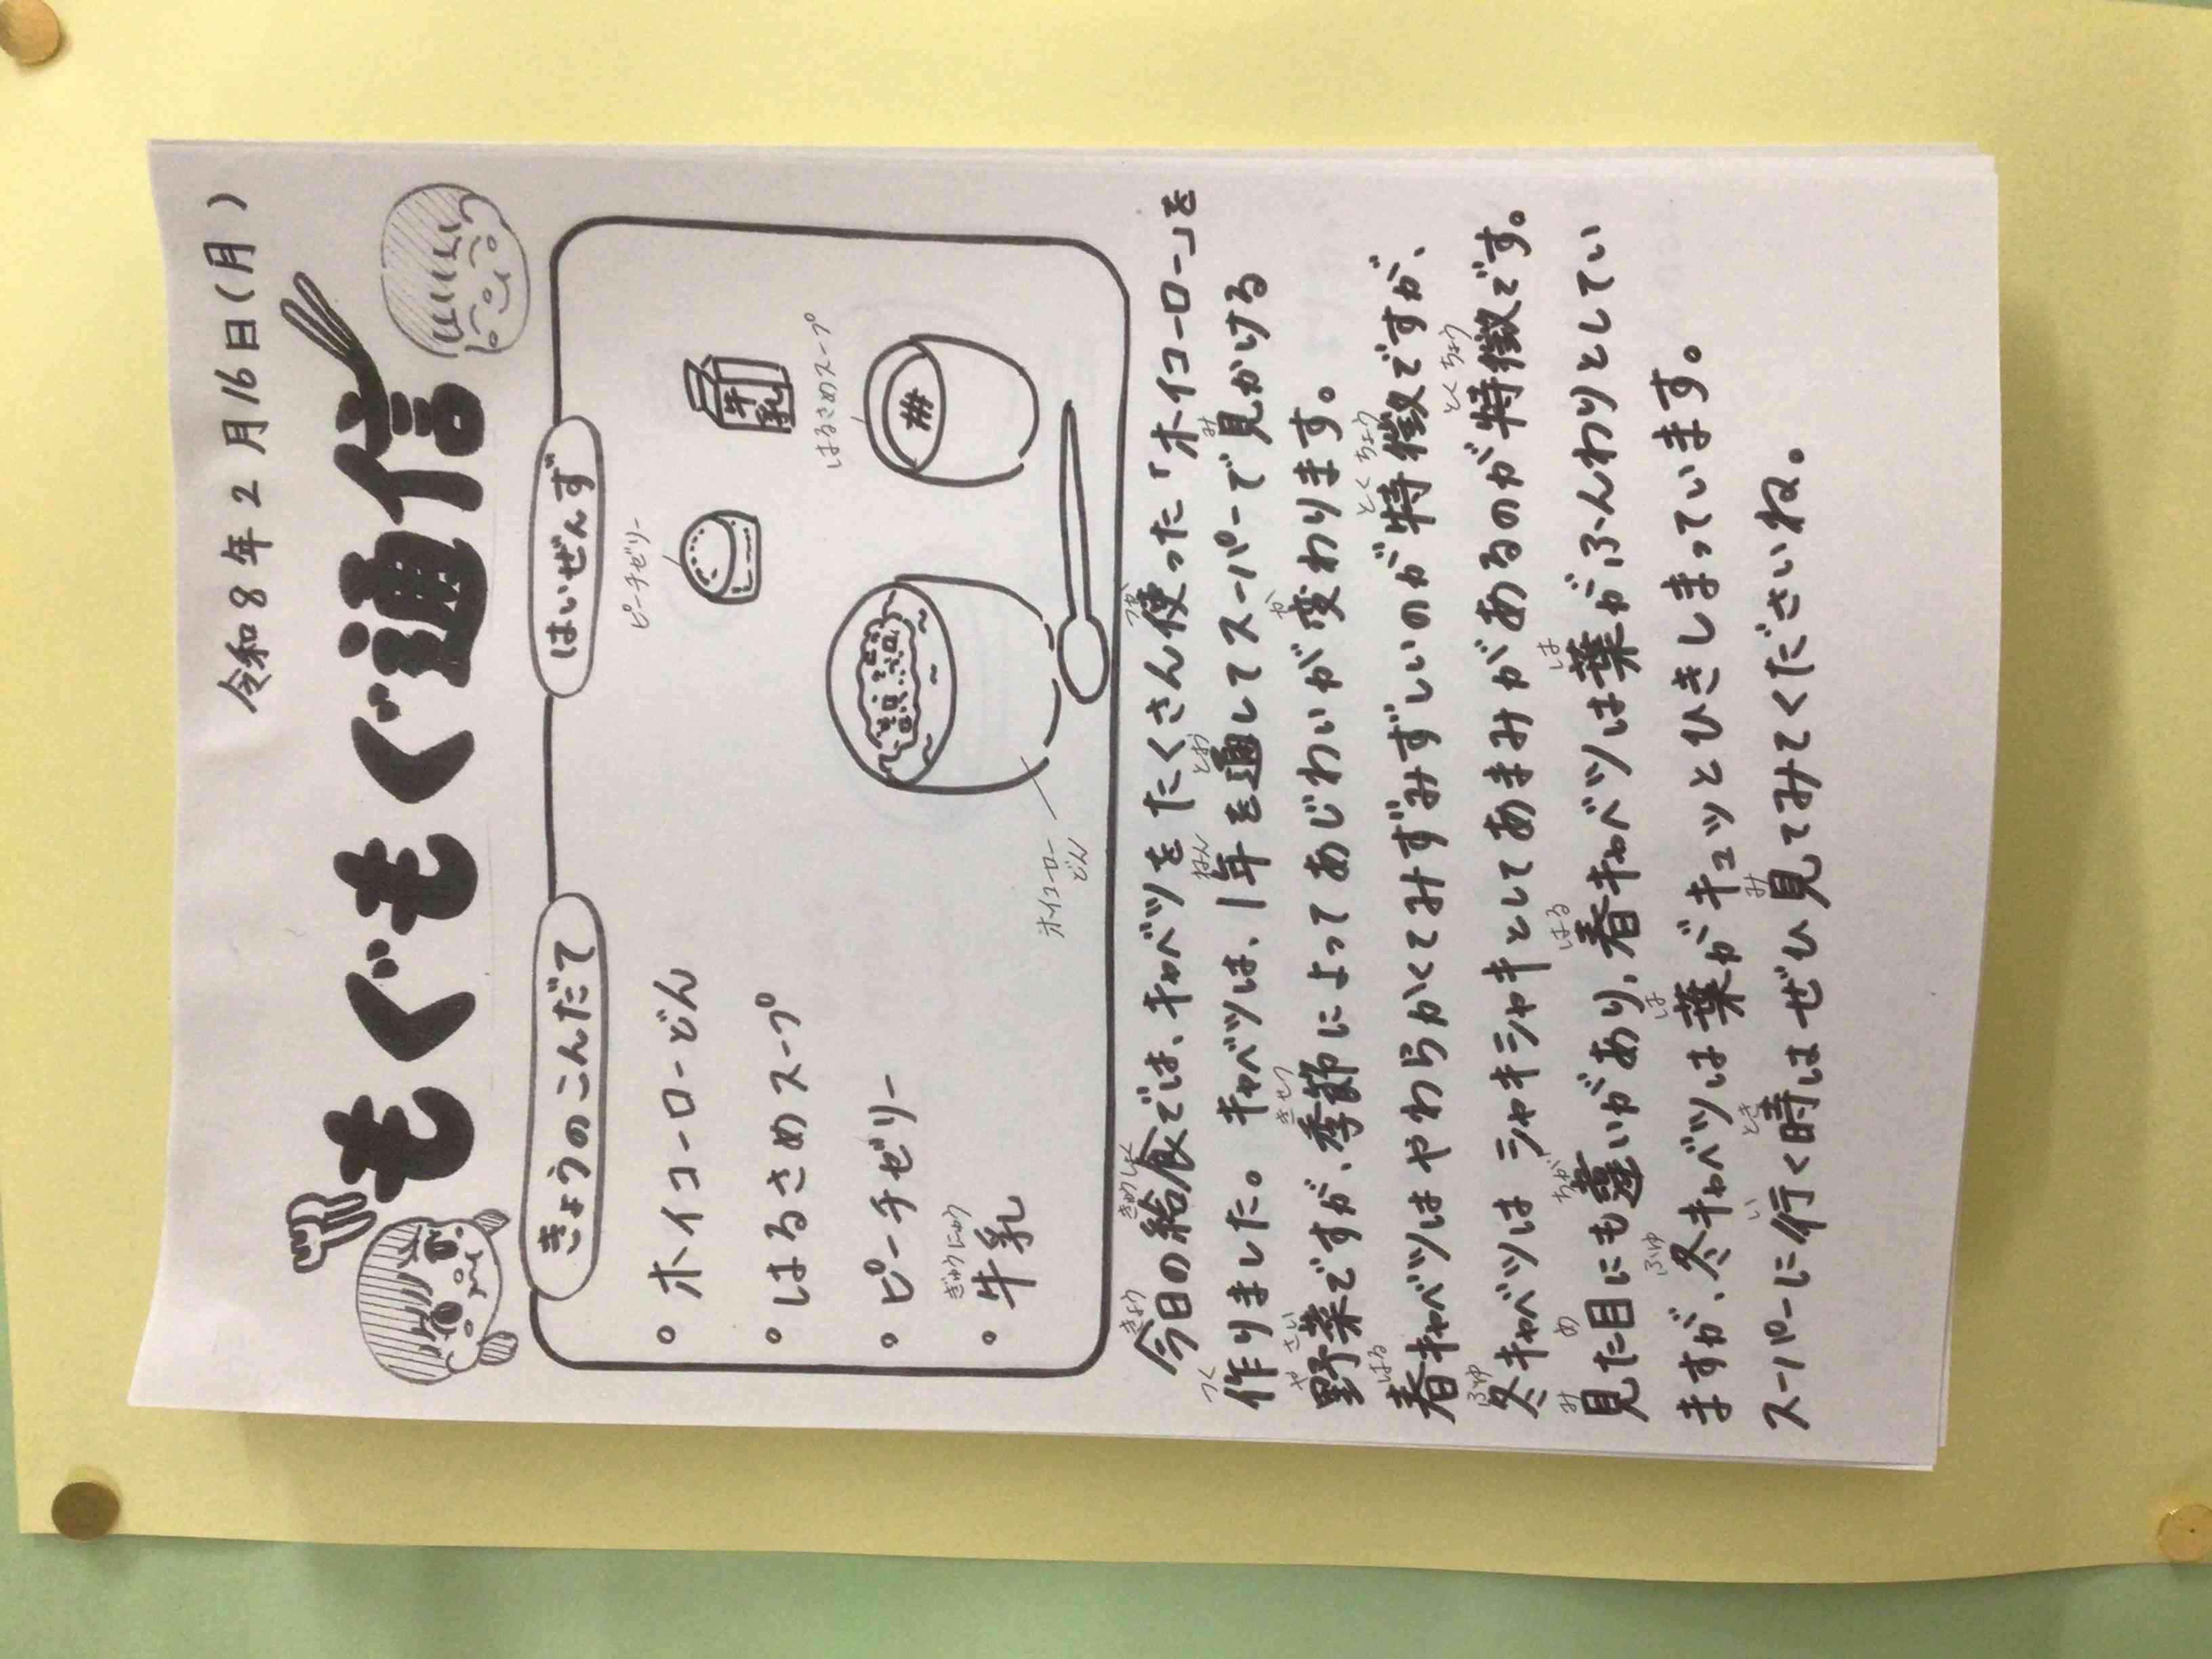 令和8年2月16日(月)
もぐもぐ通信
きょうのこんだて
はいぜんず
・ホイコーローどん
・はるさめスープ
・ピーチゼリー
・牛乳
ぎゅうにゅう
ピーチゼリー
牛乳
はるさめスープ
ホイコーロー
どん
きょう きゅうしょく つか
今日の給食では、キャベツをたくさん使った「ホイコーロー」を
つく ねん とお み
作りました。キャベツは、1年を通してスーパーで見かける
やさい きせつ か
野菜ですが、季節によってあじわいが変わります。
はる とくちょう
春キャベツはやわらかくてみずみずしいのが特徴ですが、
ふゆ とくちょう
冬キャベツはシャキシャキとしてあまみがあるのが特徴です。
み め ちが はる は
見た目にも違いがあり、春キャベツは葉がふんわりとしてい
ふゆ は
ますが、冬キャベツは葉がキュッとひきしまっています。
い とき み
スーパーに行く時はぜひ見てみてくださいね。